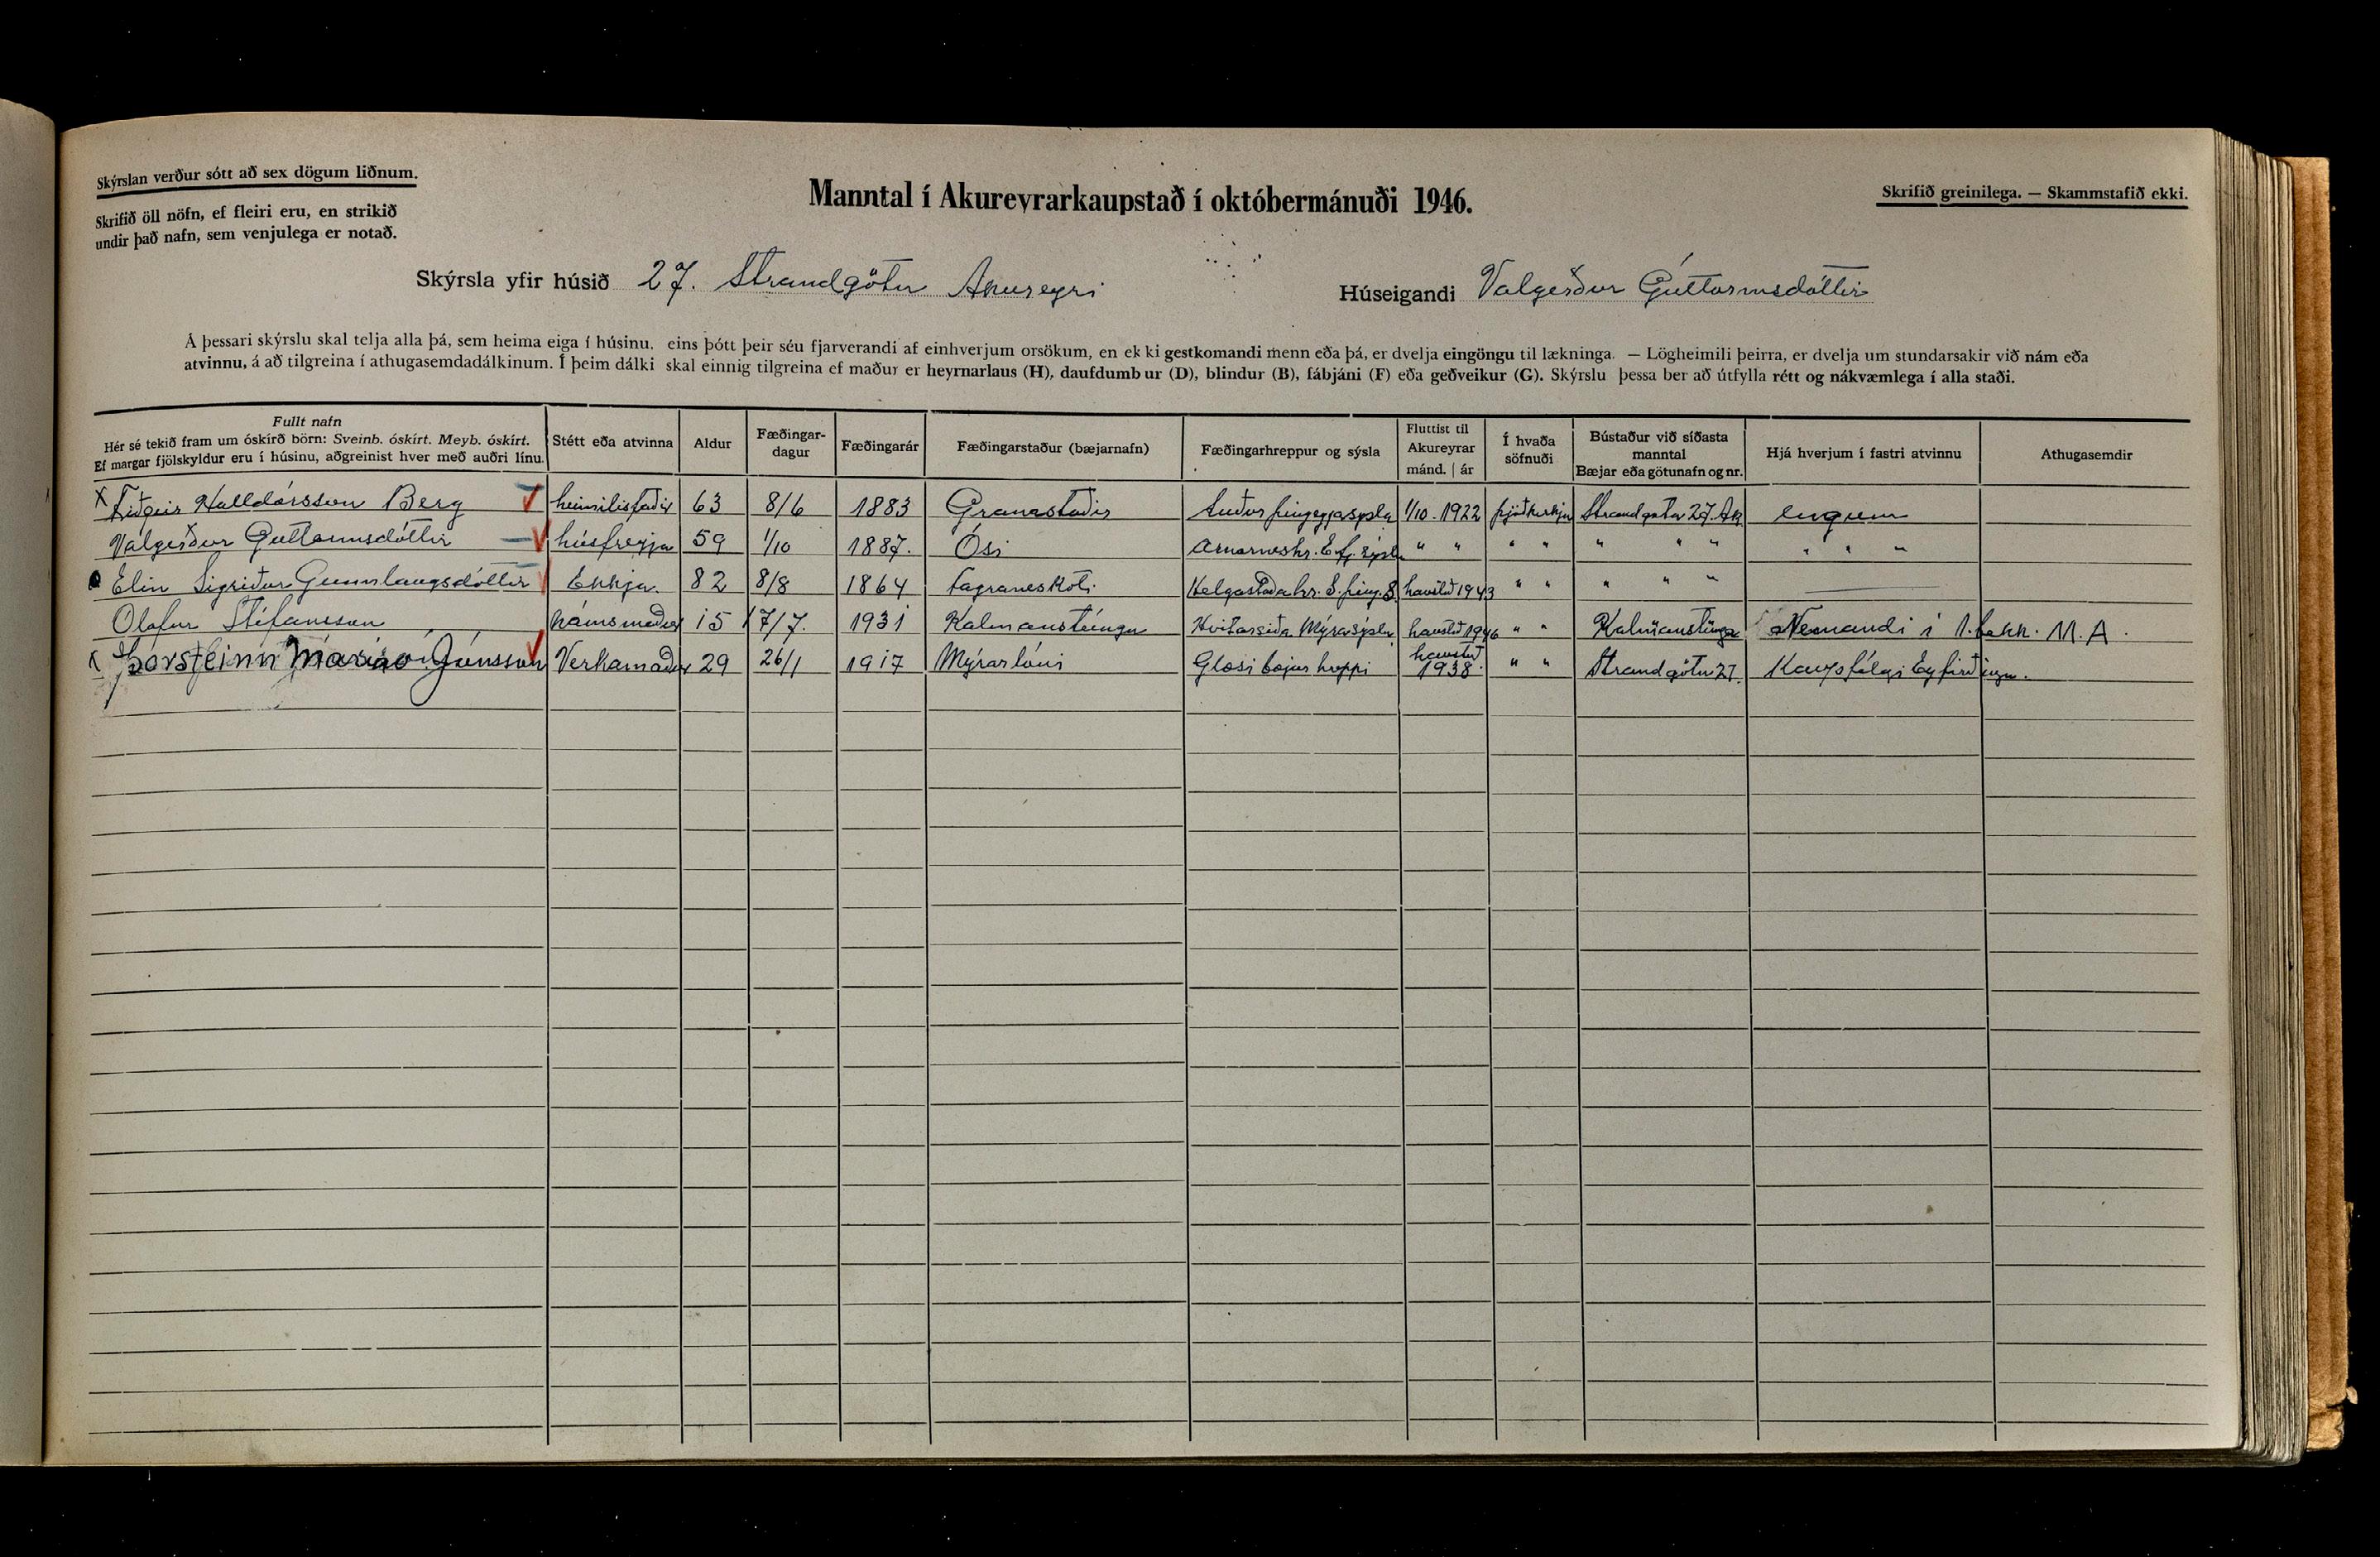 Skýrslan verður sótt að sex dögum liðnum.
Skrifið öll nöfn, ef fleiri eru, en strikið
undir það nafn, sem venjulega er notað.
Manntal í Akureyrarkaupstað í októbermánuði 1946.
Skrifið greinilega. — Skammstafið ekki.
Skýrsla yfir húsið 27. Strandgötu Akureyri
Húseigandi Valgerður Guttormsdóttir
Á þessari skýrslu skal telja alla þá, sem heima eiga í húsinu, eins þótt þeir séu fjarverandi af einhverjum orsökum, en ekki gestkomandi menn eða þá, er dvelja eingöngu til lækninga. — Lögheimili þeirra, er dvelja um stundarsakir við nám eða
atvinnu, á að tilgreina í athugasemdadálkinum. Í þeim dálki skal einnig tilgreina ef maður er heyrnarlaus (H), daufdumbur (D), blindur (B), fábjáni (F) eða geðveikur (G). Skýrslu þessa ber að útfylla rétt og nákvæmlega í alla staði.
Fullt nafn
Hér sé tekið fram um óskírð börn: Sveinb. óskírt. Meyb. óskírt.
Ef margar fjölskyldur eru í húsinu, aðgreinist hver með auðri línu.
Stétt eða atvinna
Aldur
Fæðingar-
dagur
Fæðingarár
Fæðingarstaður (bæjarnafn)
Fæðingarhreppur og sýsla
Fluttist til
Akureyrar
mánd. | ár
Í hvaða
söfnuði
Bústaður við síðasta
manntal
Bæjar eða götunafn og nr.
Hjá hverjum í fastri atvinnu
Athugasemdir
x Friðgeir Halldórsson Berg heimilisfaðir 63 8/6 1883 Granastaðir Suður þingeyjasýsla 1/10. 1922 þjóðkirkju Strandgata 27. Ak engum
Valgerður Guttormsdóttir húsfreyja 59 1/10 1887. Ósi Arnarneshr. Eyf. sýsla " " " " " " " " " "
Elín Sigríður Gunnlaugsdóttir Ekkja. 82 8/8 1864 Fagraneskoti Helgastaðahr. S. þing. S. haustið 1943 " " " " "
Olafur Stefánsson námsmaður 15 17/7. 1931 Kalmanstúngu Hvítarsíða Mýrasýslu haustið 1946 " " Kalmanstúnga Nemandi í 1. bekk. M. A.
Þorsteinn Marinó Jónsson Verkamaður 29 26/1 1917 Mýrarlóni Glæsibæjar hreppi haustið 1938. " " Strandgötu 27. Kaupfélagi Eyfirðinga.